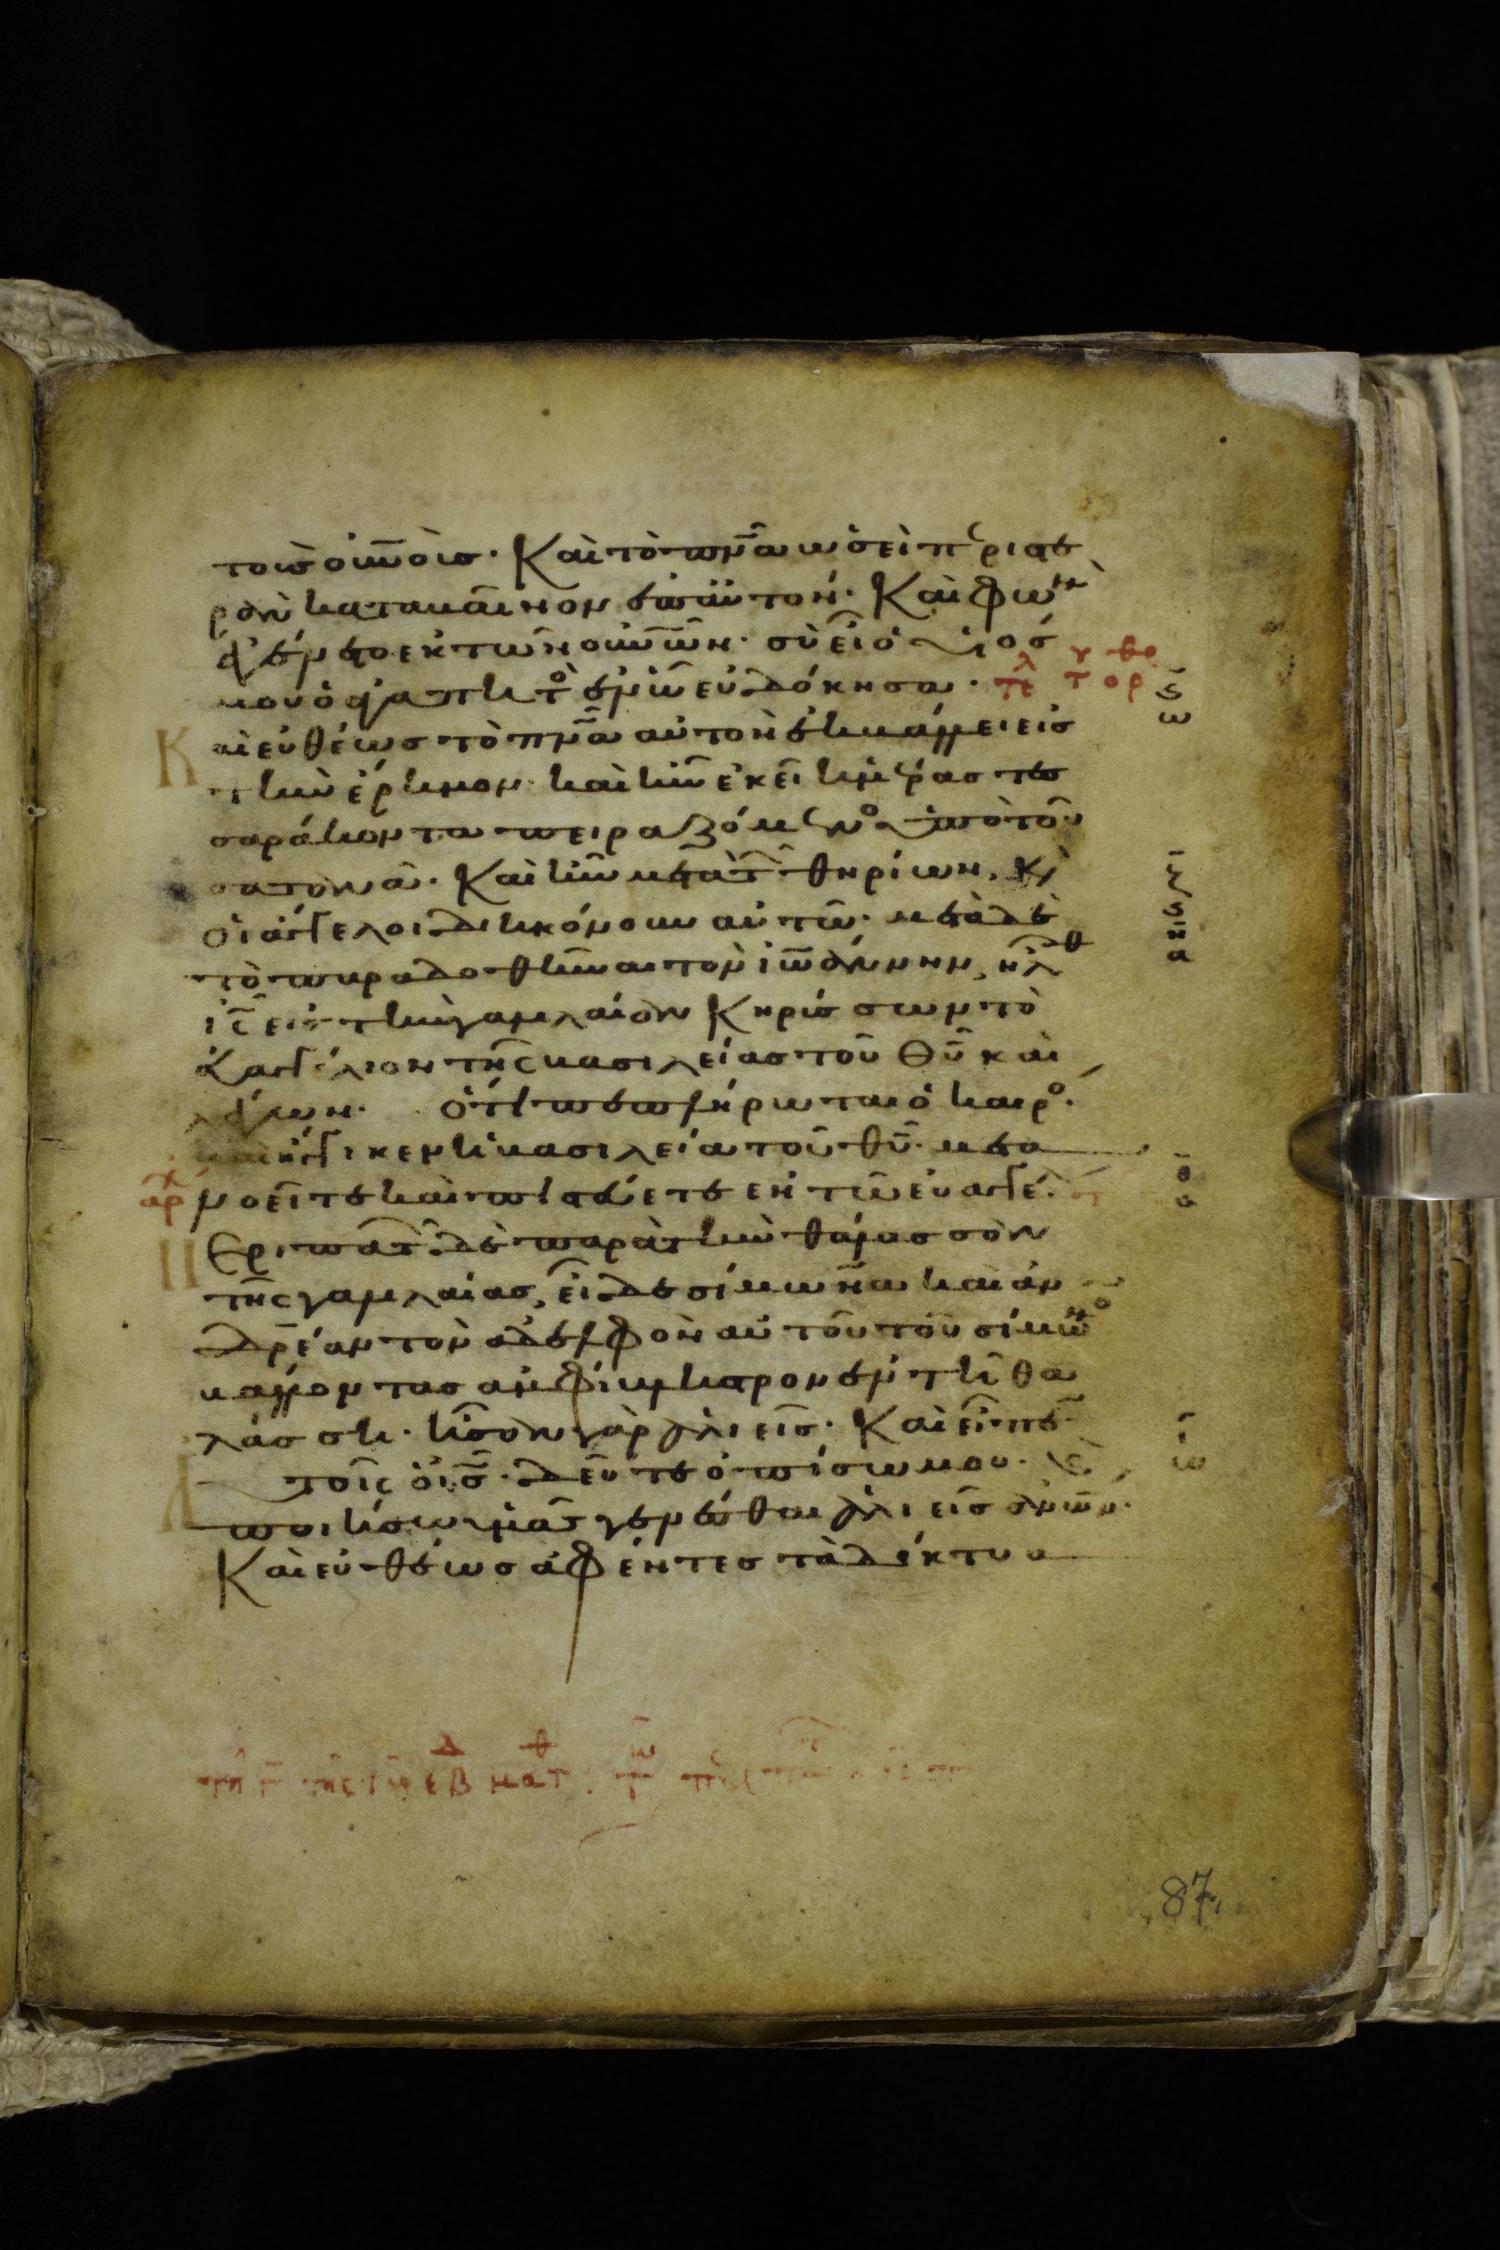 τοὺς οὐν̅οὺς· Καὶ τὸ πν̅α ὡσεὶ περιστε
ρὰν καταβαῖνον ἐπ' αὐτόν· Καὶ φωνὴ
ἐγένετο ἐκ τῶν οὐν̅ῶν· σὺ εἶ ὁ υἱός
μου ὁ ἀγαπητὸς ἐν ὧ εὐδόκησα·
Καὶ εὐθέως τὸ πν̅α αὐτὸν ἐκβάλλει εἰς
τὴν ἔρημον· καὶ ἦν ἐκεῖ ἡμέρας τεσ
σαράκοντα πειραζόμενος ὑπὸ τοῦ
σατανᾶ· Καὶ ἦν μετὰ τῶν θηρίων, κὶ
οἱ ἄγγελοι διηκόνουν αὐτῶ· μετὰ δὲ
τὸ παραδοθῆναι τὸν ἰω̅άννην, ἦλθ
ὁ ἰς̅ εἰς τὴν γαλιλαίαν κηρύσσων τὸ
εὐαγγέλιον τῆς βασιλείας τοῦ θυ̅ καὶ
λέγων· ὅτι πεπλήρωται ὁ καιρο·
καὶ ἤγγικεν ἡ βασιλεία τοῦ θυ̅· μετα
νοεῖτε καὶ πιστεύετε ἐν τῶ εὐαγγε·
Περιπατῶν δὲ παρὰ τὴν θάλασσαν
τῆς γαλιλαίας, εἶδε σίμωνα καὶ ἀν
δρέαν τὸν ἀδελφὸν αὐτοῦ τοῦ σίμωνο
βάλλοντας ἀμφίβληστρον ἐν τῆ θα
λάσση· ἦσαν γὰρ ἁλιεῖς· Καὶ εἶπε
τοῖς ὁ ις̅· δεῦτε ὀπίσω μου·
ποιήσω ὑμᾶς γενέσθαι ἁλιεῖς ἀνω̅ν·
Καὶ εὐθέως ἀφέντες τὰ δίκτυα
87